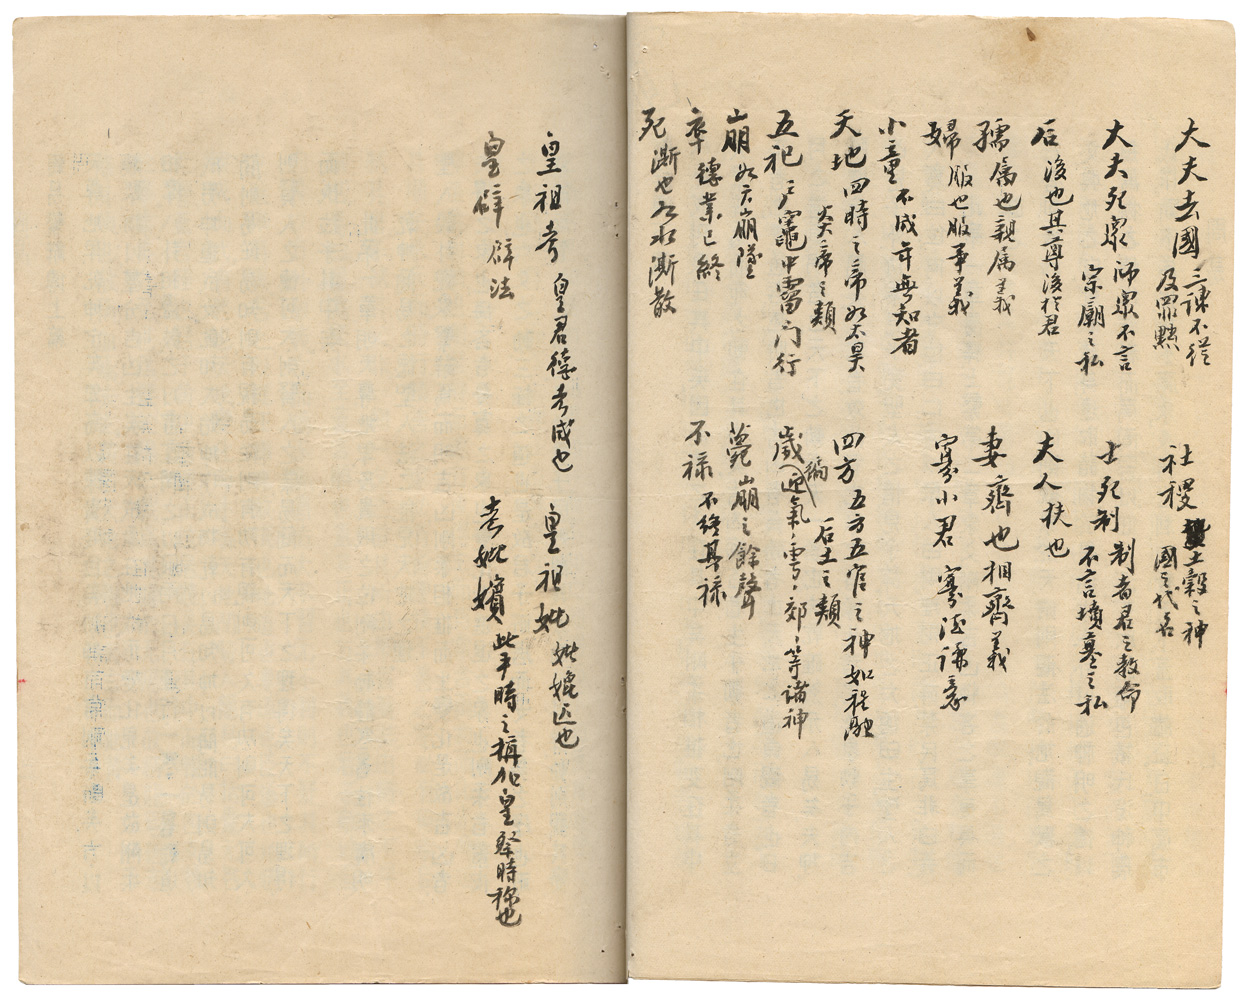 大夫去國 三諫不從
及罪黜
社稷 土穀之神
國之代名
大夫死衆 師衆不言
宗廟之私
士死制 制者君之教命
不言墳墓之私
后 後也其尊後於君
夫人 扶也
孺 属也親属義
妻 齊也相齊義
婦 服也服事義
寡小君 寡德謙意
小童 不成年無知者
天地 四時之帝如太昊
炎帝之類
四方 五方五官之神如祝融
后土之類
五祀 戶竈中霤門行
歲徧 迎氣、雩、郊、等諸神
崩 如天崩墜
薨 崩之餘聲
卒 德業已終
不祿 不終其祿
死 澌也如水澌散
皇祖考 皇君德考成也
皇祖妣 妣媲匹也
皇辟 辟法
考妣嬪 此平時之稱化皇祭時稱也